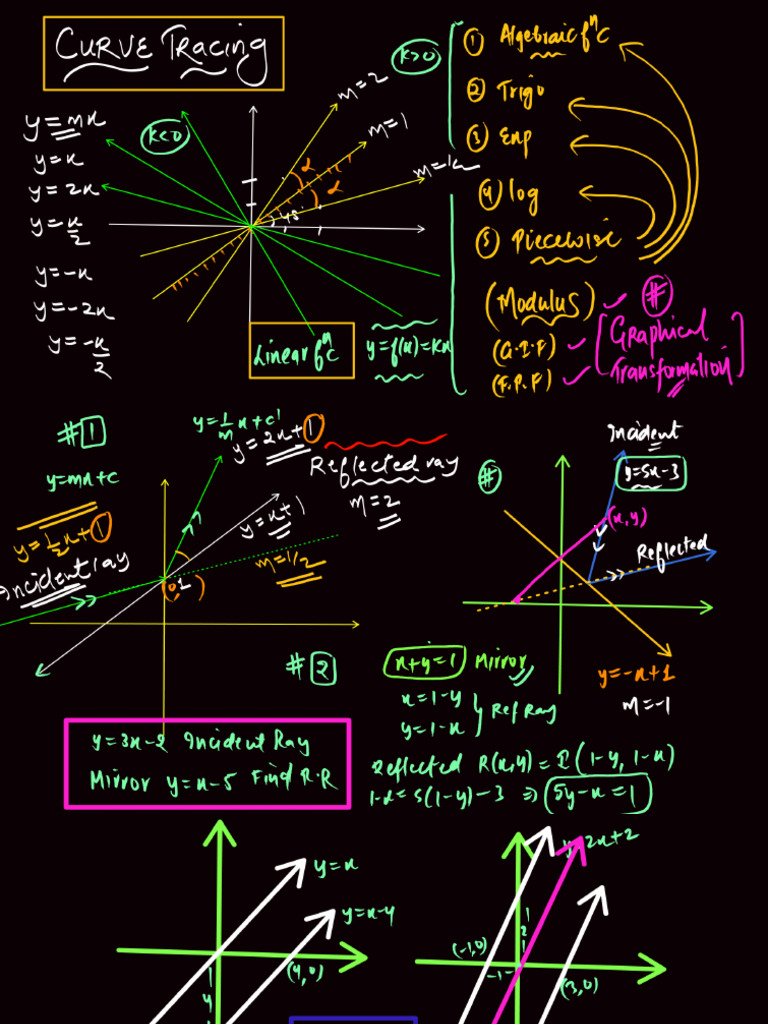 CURVE TRACING
K>0
K<0
m=2
m=1
m=1/2
α
α
45°
y=mx
y=x
y=2x
y=x/2
y=-x
y=-2x
y=-x/2
Linear fⁿc
y=f(x)=Kx
① Algebraic fⁿc
② Trigo
③ Exp
④ log
⑤ Piecewise
(Modulus)
(G.I.F)
(F.P.F)
#
[Graphical
Transformation]
#1
y=mx+c
y=1/2x+1
Incident ray
y=1/m x+c'
y=2x+1
Reflected ray
m=2
y=x+1
m=1/2
(0,1)
#2
y=3x-2 Incident Ray
Mirror y=x-5 Find R.R
#
Incident
y=5x-3
(x,y)
Reflected
y=-x+1
m=-1
x+y=1 Mirror
x=1-y
y=1-x
} Ref Ray
Reflected R(x,y)=I(1-y, 1-x)
1-x=5(1-y)-3 ⇒ 5y-x=1
y=x
y=x-4
(4,0)
4
y=2x+2
2
(-1,0)
-1
(3,0)